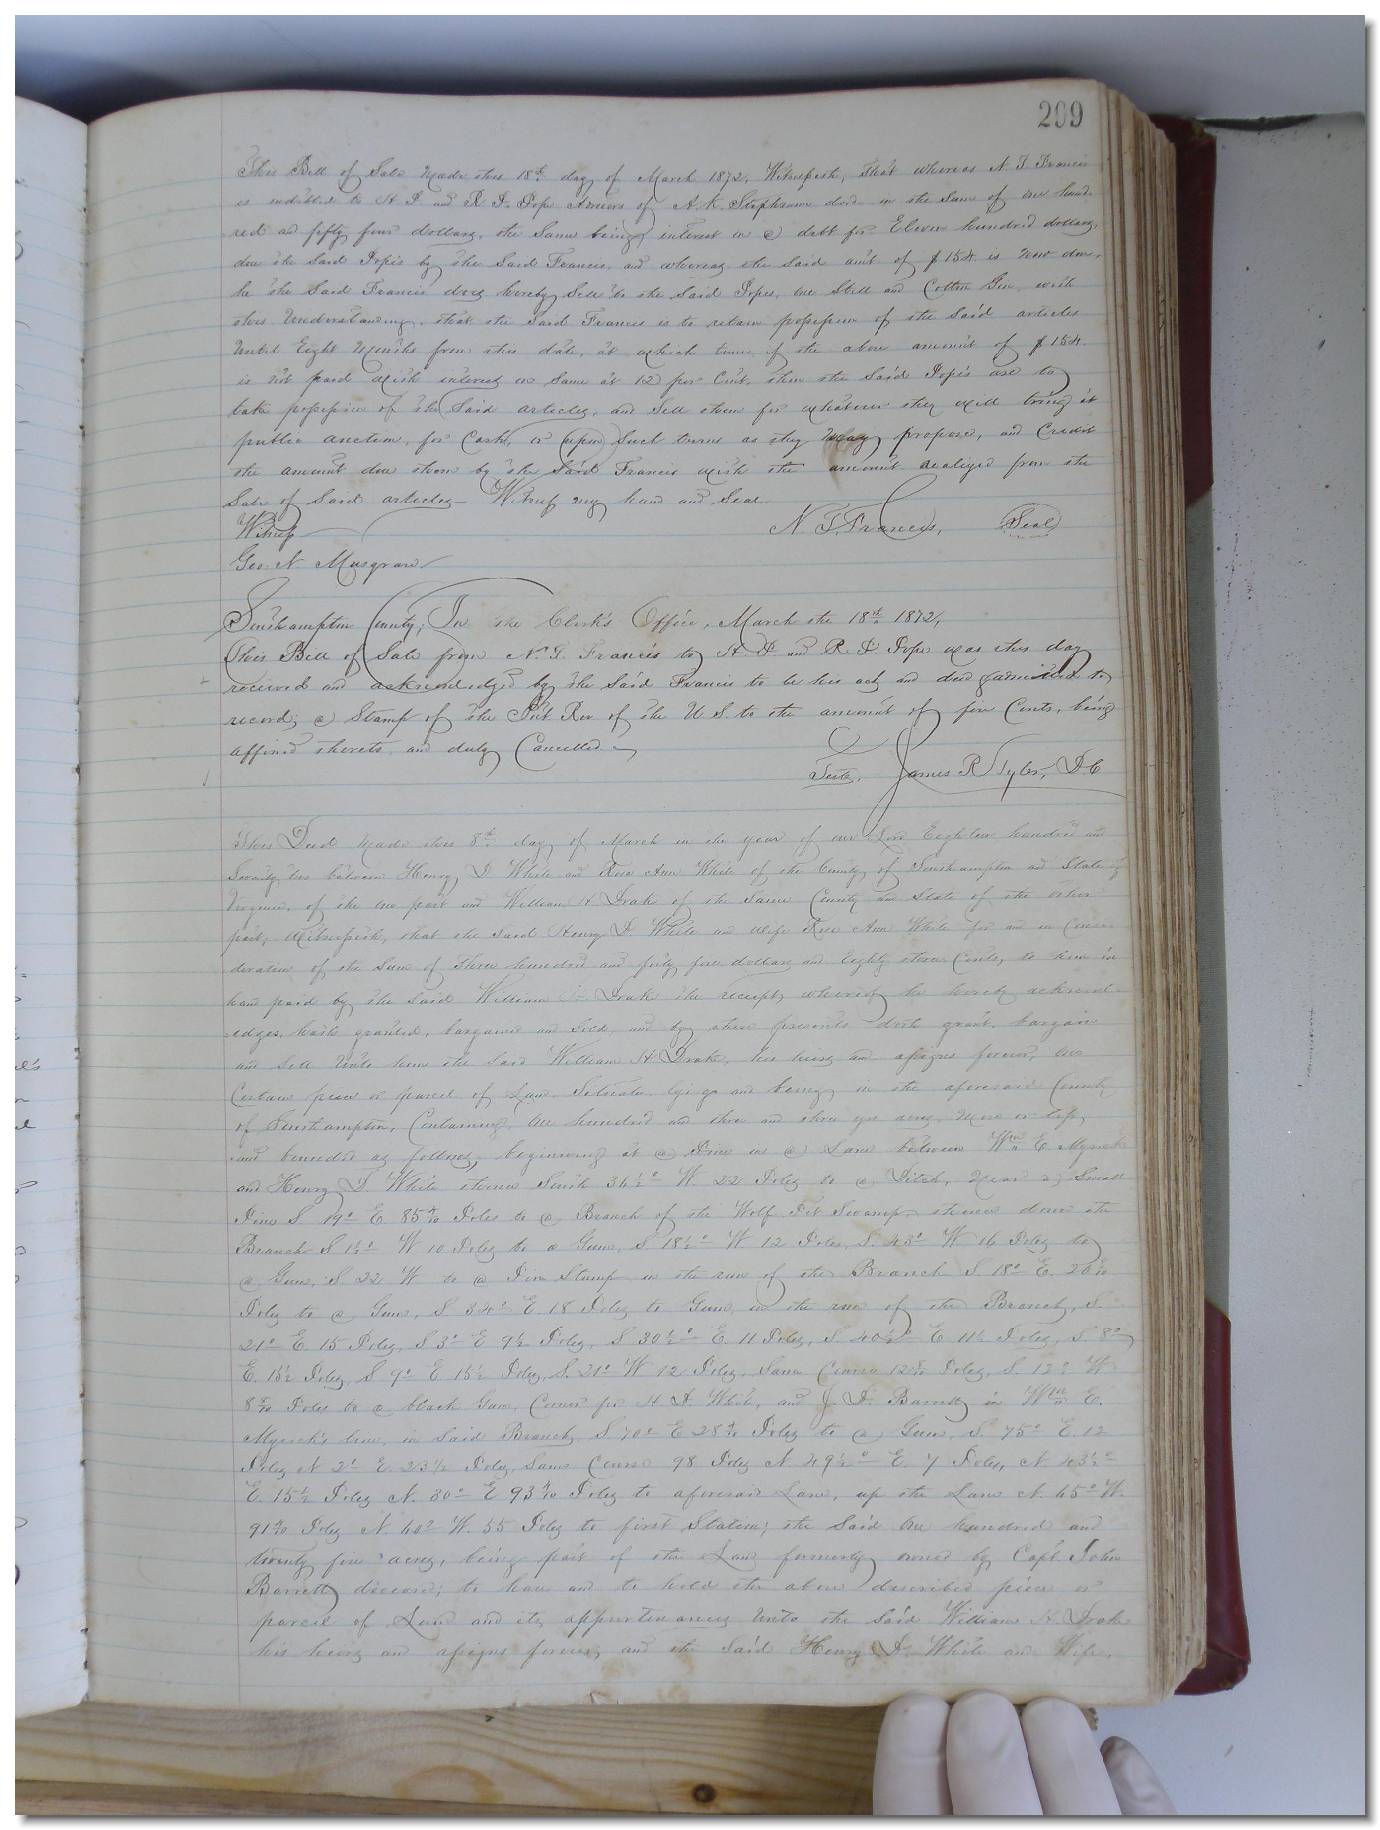 209
This Bill of Sale made this 18th day of March 1872, Witnesseth, That whereas N. T. Francis
is indebted to H. P. and R. P. Pope Admrs of A. K. Stephenson decd in the Sum of one hund-
red and fifty four dollars, the Same being interest on a debt for Eleven hundred dollars,
due the Said Popes by the Said Francis, and whereas the said amt of $154 is now due,
he the Said Francis does hereby Sell to the Said Popes, one Still and Cotton Gin, with
this Understanding, that the Said Francis is to retain possession of the said articles
Until Eight Months from this date, at which time, if the above amount of $154
is not paid with interest on Same at 12 per Cent, then the Said Popes are to
take possession of the Said articles, and Sell them for whatever they will bring at
public auction, for Cash, or upon Such terms as they may propose, and Credit
the amount due them by the Said Francis with the amount realized from the
Sale of Said articles— Witness my hand and Seal
Witness N. T. Francis, Seal
Geo. N. Musgrave
Southampton County; In the Clerk's Office, March the 18th 1872,
This Bill of Sale from N. T. Francis to H. P. and R. P. Pope was this day
received and acknowledged by the Said Francis to be his act and deed & admitted to
record; a Stamp of the Int Rev of the U. S. to the amount of five Cents, being
affixed thereto, and duly Cancelled
Teste, James R Tyler, D.C
This Deed made this 8th day of March in the year of our Lord Eighteen hundred and
Seventy two between Henry D White and Rose Ann White of the County of Southampton and State of
Virginia, of the one part and William H Drake of the Same County and State of the other
part, Witnesseth, that the Said Henry D White and wife Rose Ann White for and in Consi-
deration of the Sum of Three hundred and forty four dollars and Eighty three Cents, to him in
hand paid by the Said William H Drake the receipt, whereof he hereby acknowl-
edges, hath granted, bargained and Sold, and by these presents doth grant, bargain
and Sell Unto him the Said William H Drake, his heirs and assigns forever, one
Certain piece or parcel of Land, Situate lying and being in the aforesaid County
of Southampton, Containing One hundred and acres, more or less,
and bounded as follows, beginning at a Pine in a Lane between Wm E Myrick
and Henry D. White thence South 36½° W 22 Poles to a Ditch, near a Small
Pine S 19° E 85 Poles to a Branch of the Wolf Pit Swamp, thence down the
Branch S 1½° W 10 Poles to a Gum, S 18½° W 12 Poles, S. 43° W 16 Poles to
a Gum, S 22 W to a Pine Stump in the run of the Branch S 18° E. 20
Poles to a Gum, S 34° E 18 Poles to Gum, in the run of the Branch, S.
21° E 15 Poles, S 3° E 9½ Poles, S 30½° E 11 Poles, S 40½° E 11½ Poles, S 8°
E. 13½ Poles, S 9° E 15½ Poles, S. 21° W 12 Poles, Same Course 12 Poles, S. 12° W
8 Poles to a black Gum, Corner for H D. White, and J. D. Barrett, in Wm E.
Myrick's line, in said Branch, S 70° E 28 Poles to a Gum, S. 75° E. 12
Poles N 2° E 23½ Poles, Same Course 98 Poles N 49½° E. 7 Poles, N. 43½°
E. 15½ Poles N. 30° E 93 Poles to aforesaid Lane, up the Lane N. 65° W.
91 Poles N. 60° W. 55 Poles to first Station; the Said One hundred and
twenty five acres, being part of the Land formerly owned by Capt. John
Barrett, deceased; to have and to hold the above described piece or
parcel of Land and its appurtenances Unto the Said William H Drake
his heirs and assigns forever, and the Said Henry D. White and Wife,